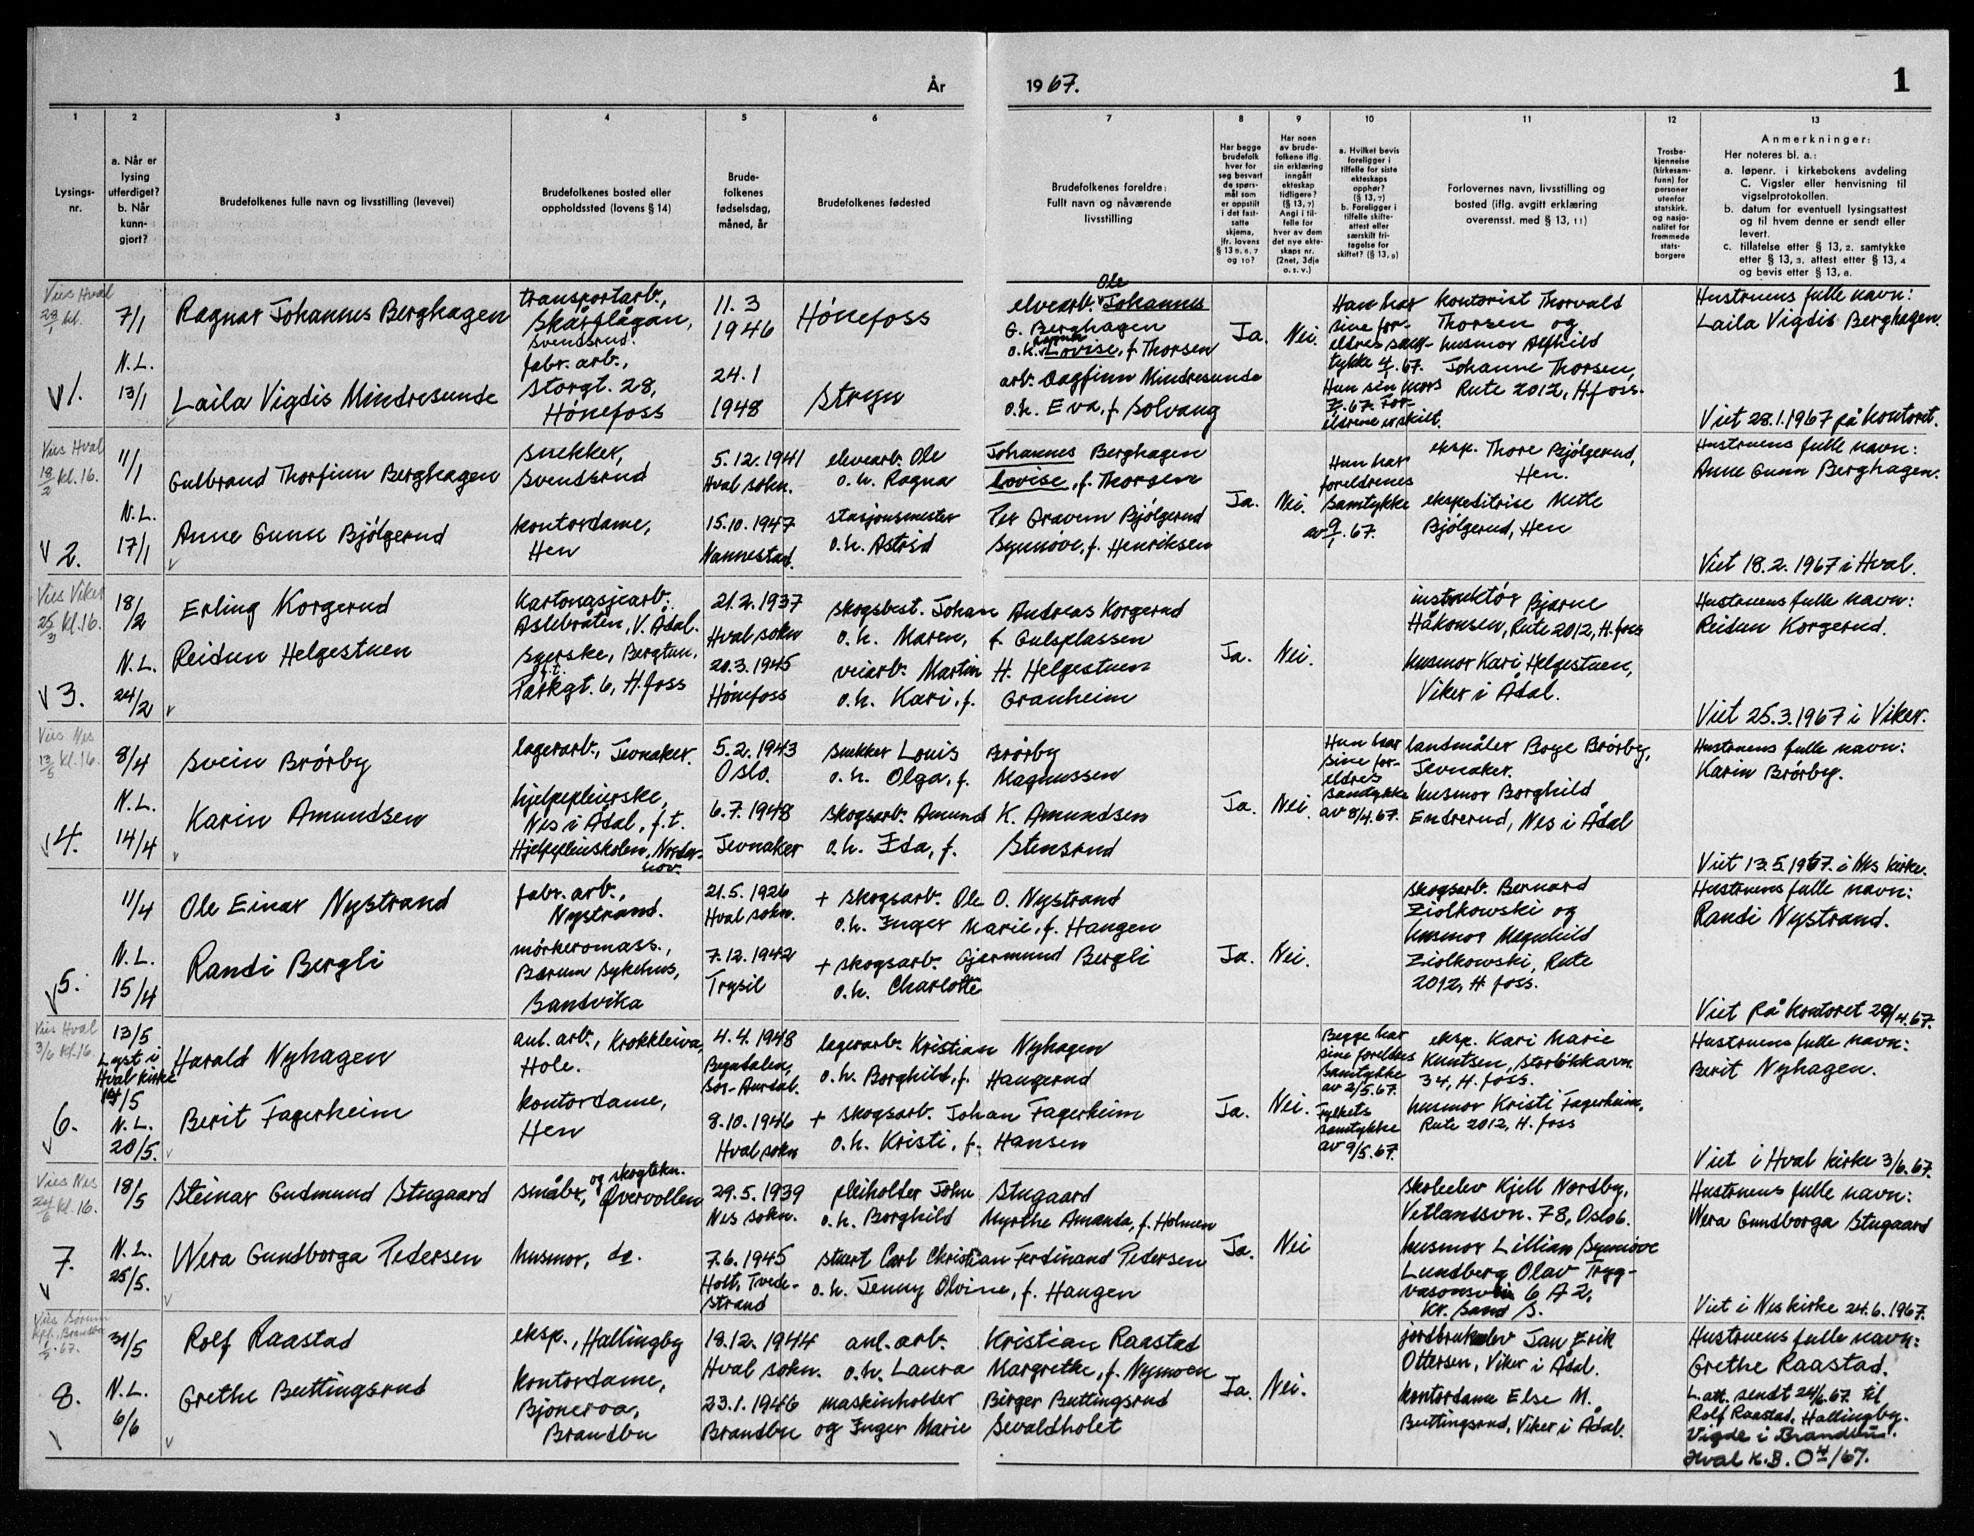 År 1967.
1
1 2 3 4 5 6 7 8 9 10 11 12 13
Lysings-
nr.
a. Når er
lysing
utferdiget?
b. Når
kunn-
gjort?
Brudefolkenes fulle navn og livsstilling (levevei)
Brudefolkenes bosted eller
oppholdssted (lovens § 14)
Brude-
folkenes
fødselsdag,
måned, år
Brudefolkenes fødested
Brudefolkenes foreldre:
Fullt navn og nåværende
livsstilling
Har begge
brudefolk
hver for
seg besvart
de spørs-
mål som
er oppstilt
i det fast-
satte
skjema,
jfr. lovens
§ 13 5, 6, 7
og 10?
Har noen
av brude-
folkene iflg.
sin erklæring
inngått
ekteskap
tidligere?
(§ 13, 7)
Angi i til-
felle for
hver av dem
det nye ekte-
skaps nr.
(2net, 3dje
o. s. v.)
a. Hvilket bevis
foreligger i
tilfelle for siste
ekteskaps
opphør?
(§ 13, 7)
b. Foreligger i
tilfelle skifte-
attest eller
særskilt fri-
tagelse for
skiftet? (§ 13, 9)
Forlovernes navn, livsstilling og
bosted (iflg. avgitt erklæring
overensst. med § 13, 11)
Trosbe-
kjennelse
(kirkesam-
funn) for
personer
utenfor
statskirk.
og nasjo-
nalitet for
fremmede
stats-
borgere
Anmerkninger:
Her noteres bl. a.:
a. løpenr. i kirkebokens avdeling
C. Vigsler eller henvisning til
vigselprotokollen.
b. datum for eventuell lysingsattest
og til hvem denne er sendt eller
levert.
c. tillatelse etter § 13, 2. samtykke
etter § 13, 3. attest etter § 13, 4
og bevis etter § 13, 8.
Vies Hval
28/1 kl.
1.
7/1
N.L.
13/1
Ragnar Johannes Berghagen
Laila Vigdis Mindresunde
transportarb.,
Skårflågan,
Svendsrud.
fabr. arb.,
Storgt. 28,
Hønefoss
11.3
1946
24.1
1948
Hønefoss
Stryn
elvearb. Ole Johannes
G. Berghagen
o.h. Ragna Lovise, f. Thorsen
arb. Dagfinn Mindresunde
o.h. Eva, f. Solvang
Ja.
Nei.
Han har
sine for-
eldres sam-
tykke 4/1.67.
Hun sin mors
7/1.67. For-
eldrene er skilt.
kontorist Thorvald
Thorsen og
husmor Alfhild
Johanne Thorsen,
Rute 2012, H.foss.
Hustruens fulle navn:
Laila Vigdis Berghagen.
Viet 28.1.1967 på kontoret.
Vies Hval
18/2 kl. 16.
2.
11/1
N.L.
17/1
Gulbrand Thorfinn Berghagen
Anne Gunn Bjølgerud
snekker,
Svendsrud
kontordame,
Hen
5.12.1941
Hval sokn.
15.10.1947
Nannestad.
elvearb. Ole Johannes Berghagen
o.h. Ragna Lovise, f. Thorsen
stasjonsmester Per Gravem Bjølgerud
o.h. Astrid Synnøve, f. Henriksen
Ja.
Nei.
Hun har
foreldrenes
samtykke
av 9/1.67.
eksp. Thore Bjølgerud,
Hen.
ekspeditrise Mette
Bjølgerud, Hen
Hustruens fulle navn:
Anne Gunn Berghagen.
Viet 18.2.1967 i Hval.
Vies Viker
25/3 kl. 16.
3.
18/2
N.L.
24/2
Erling Korgerud
Reidun Helgestuen
Kartongsjearb.,
Aslebråten, V. Ådal.
Syerske, Bergtun,
f.t.
Parkgt. 6, H.foss
21.2.1937
Hval sokn
20.3.1945
Hønefoss
skogsbest. Johan Andreas Korgerud
o.h. Maren, f. Gulsplassen
veiarb. Martin H. Helgestuen
o.h. Kari, f. Granheim
Ja.
Nei.
instruktør Bjarne
Håkonsen, Rute 2012, H.foss
husmor Kari Helgestuen,
Viker i Ådal.
Hustruens fulle navn:
Reidun Korgerud.
Viet 25.3.1967 i Viker.
Vies Nes
13/5 kl. 16.
4.
8/4
N.L.
14/4
Svein Brørby
Karin Amundsen
lagerarb., Jevnaker.
hjelpepleierske,
Nes i Ådal, f.t.
Hjelpepleieskolen, Norder-
hov.
5.2.1943
Oslo.
6.7.1948
Jevnaker
snekker Louis Brørby
o.h. Olga, f. Magnussen
skogsarb. Amund K. Amundsen
o.h. Eda, f. Stensrud
Ja.
Nei.
Hun har
sine for-
eldres
samtykke
av 8/4.67.
landmåler Boye Brørby,
Jevnaker.
husmor Borghild
Endrerud, Nes i Ådal
Hustruens fulle navn:
Karin Brørby.
Viet 13.5.1967. i Nes kirke.
5.
11/4
N.L.
15/4
Ole Einar Nystrand
Randi Bergli
fabr. arb.,
Nystrand.
mørkeromass.,
Bærum sykehus,
Sandvika
21.5.1926
Hval sokn.
7.12.1942
Trysil
+ skogsarb. Ole O. Nystrand
o.h. Inger Marie, f. Haugen
+ skogsarb. Gjermund Bergli
o.h. Charlotte
Ja.
Nei.
skogsarb. Bernard
Ziolkowski og
husmor Magnhild
Ziolkowski, Rute
2012, H.foss.
Hustruens fulle navn:
Randi Nystrand.
Viet på kontoret 29/4.67.
Vies Hval
3/6 kl. 16.
6.
13/5
Lyst i
Hval kirke
14/5
N.L.
20/5.
Harald Nyhagen
Berit Fagerheim
anl. arb., Krokkleiva,
Hole.
kontordame,
Hen
4.4.1948
Begndalen,
Sør-Aurdal.
8.10.1946
Hval sokn
lagerarb. Kristian Nyhagen
o.h. Borghild, f. Haugerud
+ skogsarb. Johan Fagerheim
o.h. Kristi, f. Hansen
Ja.
Nei.
Begge har
sine foreldres
samtykke
av 2/5.67.
Fylkets
samtykke
av 9/5.67.
eksp. Kari Marie
Knutsen, Storløkkavn.
34, H.foss.
husmor Kristi Fagerheim,
Rute 2012, H.foss
Hustruens fulle navn:
Berit Nyhagen.
Viet i Hval kirke 3/6.67.
Vies Nes
24/6 kl. 16.
7.
18/5
N.L.
25/5.
Steinar Gudmund Stugaard
Wera Gundborga Pedersen
og skogtekn.
småbr., Øvervollen
husmor, do.
29.5.1939
Nes sokn.
7.6.1945
Holt, Tvede-
strand
pleiholder John Stugaard
o.h. Borghild Myrthe Amanda, f. Holmen
stuert Carl Christian Ferdinand Pedersen
o.h. Jenny Olvine, f. Haugen
Ja.
Nei
skoleelev Kjell Nordby,
Vetlandsvn. 78, Oslo 6.
husmor Lillian Synnøve
Lundberg Olav Tryg-
vasonsvei 6 A 2,
Kr. Sand S.
Hustruens fulle navn:
Wera Gundborga Stugaard
Viet i Nes kirke 24.6.1967.
8.
31/5
N.L.
6/6
Rolf Raastad
Grethe Buttingsrud
eksp., Hallingby
kontordame,
Bjoneroa,
Brandbu
18.12.1944
Hval sokn.
23.1.1946
Brandbu
anl. arb. Kristian Raastad
o.h. Laura Margrethe, f. Nymoen
maskinholder Birger Buttingsrud
og Inger Marie Sevaldholet
Ja.
Nei.
jordbrukselev Jan Erik
Ottersen, Viker i Ådal.
kontordame Else M.
Buttingsrud, Viker i Ådal.
Hustruens fulle navn:
Grethe Raastad.
L.att. sendt 24/6.67. til
Rolf Raastad, Hallingby.
Vigde i Brandbu.
Hval K.B. 04/67.